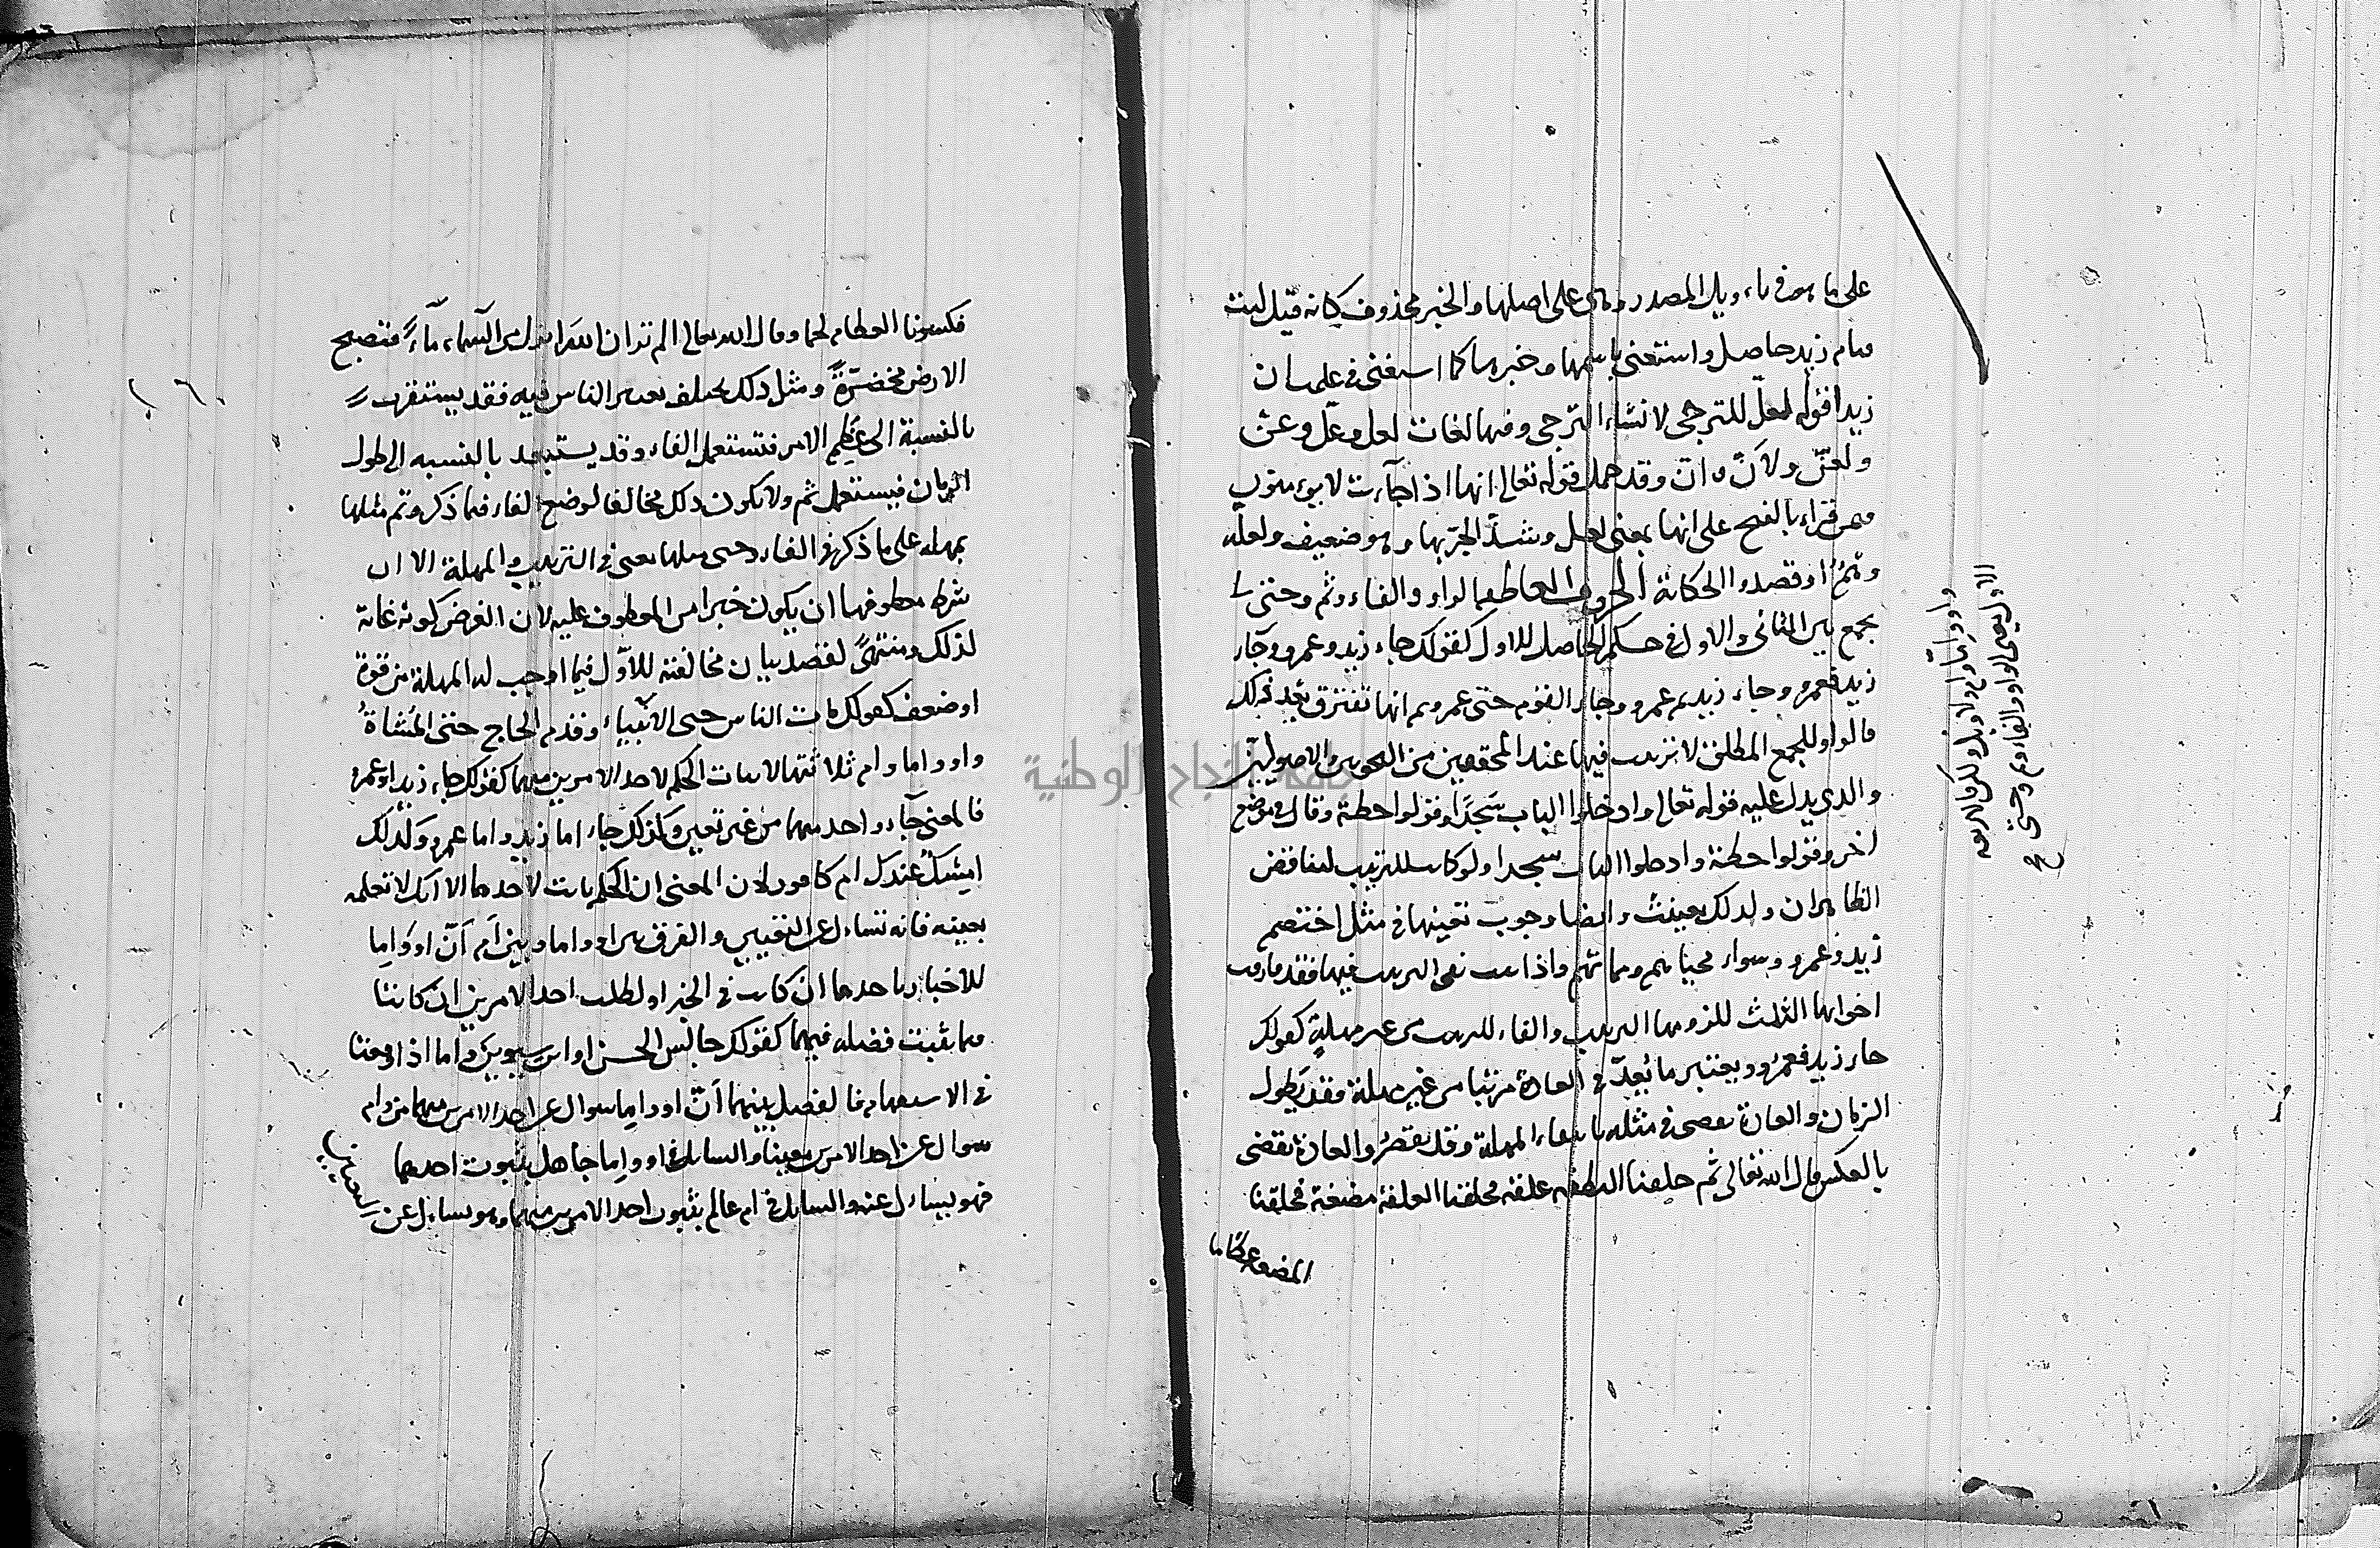 على ما هو في تاويل المصدر وهي على اصلها والخبر محذوف كانه قيل ليت
قيام زيد حاصل واستغنى باسمها وخبرها كما استغنى في علمت ان
زيدا قوله لعل للترجي لانشاء الترجي وفيها لغات لعل وعل وعن
ولعن ولان وان وقد حمل قوله تعالى انها اذا جآءت لا يومنون
فيمن قراء بالفتح على انها بمعنى لعل وشذ الجر بها وهو ضعيف ولعله
وقصدوا الحكاية الحروف العاطفة الواو والفاء وثم وحتى
يجمع بين الثاني والاول في حكم الحاصل للاول كقولك جاء زيد وعمرو وجآء
زيد فعمرو وجاء زيد ثم عمرو وجاء القوم حتى عمرو ثم انها تفترق بعد ذلك
فالواو للجمع المطلق لا ترتيب فيها عند المحققين من النحويين والاصوليين
والذي يدل عليه قوله تعالى وادخلوا الباب سجدا وقولوا حطة وقال في موضع
اخر وقولوا حطة وادخلوا الباب سجدا ولو كانت للترتيب لتناقض
الظاهران ولذلك وايضا وجوب تعينها في مثل اختصم
زيد وعمرو وسواء محياهم ومماتهم واذا ثبت نفي الترتيب فيها فقد فارقت
اخواتها الثلث للزومها الترتيب والفاء للترتيب من غير مهلة كقولك
جاء زيد فعمرو ويعتبر ما يعد في العادة مرتبا من غير مهلة فقد يطول
الزمان والعادة تقضي في مثله بانتفاء المهلة وقد يقصر والعادة تقضي
بالعكس قال الله تعالى ثم خلقنا النطفة علقة فخلقنا العلقة مضغة فخلقنا
المضغة عظاما
الاول يعني الواو والفاء وثم وحتى
واو واما وام ولا وبل ولكن الاربعة
فكسونا العظام لحما وقال الله تعالى الم تر ان الله انزل من السماء مآء فتصبح
الارض مخضرة ومثل ذلك يختلف بعد من الناس فيه فقد يستقرب
بالنسبة الى عظم الامر فتستعمل الفاء وقد يستبعد بالنسبه الى طول
الزمان فيستعمل ثم ولا يكون ذلك مخالفا لوضع الفاء فيما ذكر وثم مثلها
بمهله على ما ذكر في الفاء وحتى مثلها يعني في الترتيب والمهلة الا ان
شرط معطوفها ان يكون خبرا من المعطوف عليه لان الغرض كونه غاية
لذلك ومنتهى لقصد بيان مخالفته للاول فيما اوجب له المهلة من قوة
او ضعف كقولك مات الناس حتى الانبياء وقدم الحاج حتى المشاة
واو واما وام ثلاثتها لاثبات الحكم لاحد الامرين منهما كقولك جاء زيد او عمرو
فالمعنى جآء واحد منهما من غير تعيين وكذلك جاء اما زيد واما عمرو وكذلك
عندك ام كافور لان المعنى ان الحكم ثابت لاحدهما الا انك لا تعلمه
بعينه فانه تساءل عن التعيين والفرق بين او واما وبين ام ان او واما
للاخبار باحدهما ان كانت في الخبر او لطلب احد الامرين ان كانتا
فيما ثبت فضله فيهما كقولك جالس الحسن او ابن سيرين واما اذا وقعتا
في الاستفهام فالفصل بينهما ان او واما سوال عن احد الامرين منهما وام
سوال عن احد الامرين معينا والسائل في او واما جاهل بثبوت احدهما
فهو يساءل عنه والسائل في ام عالم بثبوت احد الامرين منهما وهو يساءل عن
التعيين
جامعة النجاح الوطنية